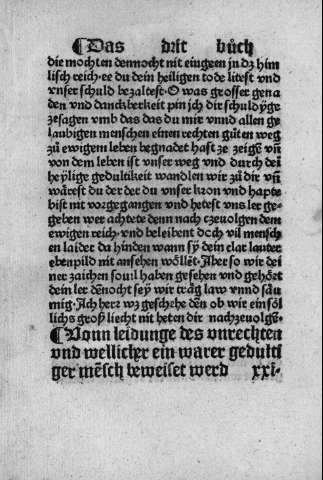 ¶Das drit bůch
die mochten dennocht nit eingeen jn dz him
lisch reich· ee du dein heiligen tode litest vnd
vnser schuld bezaltest· O was grosser gena
den vnd danckberkeit pin jch dir schuldyge
zesagen vmb das das du mir vnnd allen ge
laubigen menschen einen rechten gůten weg
zů ewigem leben begnadet hast ze zeigẽ vnd
von dem leben ist vnser weg vnd durch dein
heylige gedultikeit wandlen wir zů dir vñ
wärest du der der du vnser kron vnd hapte
bist nit vorgegangen vnd hetest vns ler ge-
geben wer achtete denn nach czeuolgen dem
ewigen reich· vnd beleibent doch vil mensch
en laider da hinden wann sy dein clar lauter
ebenpild nit ansehen wöllẽt· Aber so wir dei
ner zaichen souil haben gesehen vnd gehört
dein ler deñocht sey wir träg law vnnd säu
mig· Ach herr wz geschehe deñ ob wir ein söl
lichs groß liecht nit heten dir nachzeuolgẽ·
¶Vonn leidunge des vnrechten
vnd wellicher ein warer gedulti
ger mẽsch beweiset werd xxi·